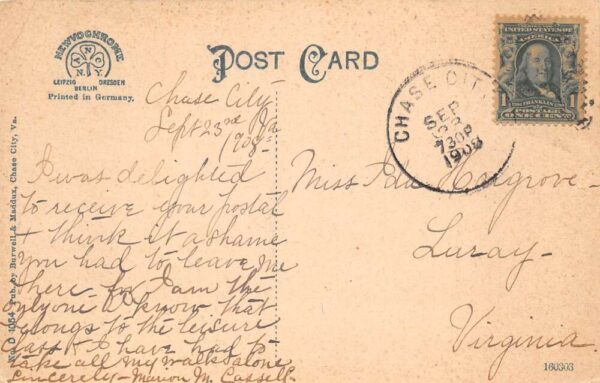 NEWVOCHROME
T.P. & Co.
N.Y.
LEIPZIG DRESDEN
BERLIN
Printed in Germany.
POST CARD
UNITED STATES OF AMERICA
FRANKLIN
POSTAGE
1 ONE CENT 1
CHASE CITY
SEP
23
730P
1908
No. D 1054 Pub. by Burwell & Maddux, Chase City, Va.
Chase City
Va
Sept 23rd
1908-
I was delighted
to receive your postal
& think it a shame
you had to leave me
here for I am the
only one I know that
belongs to the leisure
class & I have had to
take all my walks alone
Sincerely - Marion M. Cassell.
Miss Ada Musgrove-
Luray-
Virginia.
160303